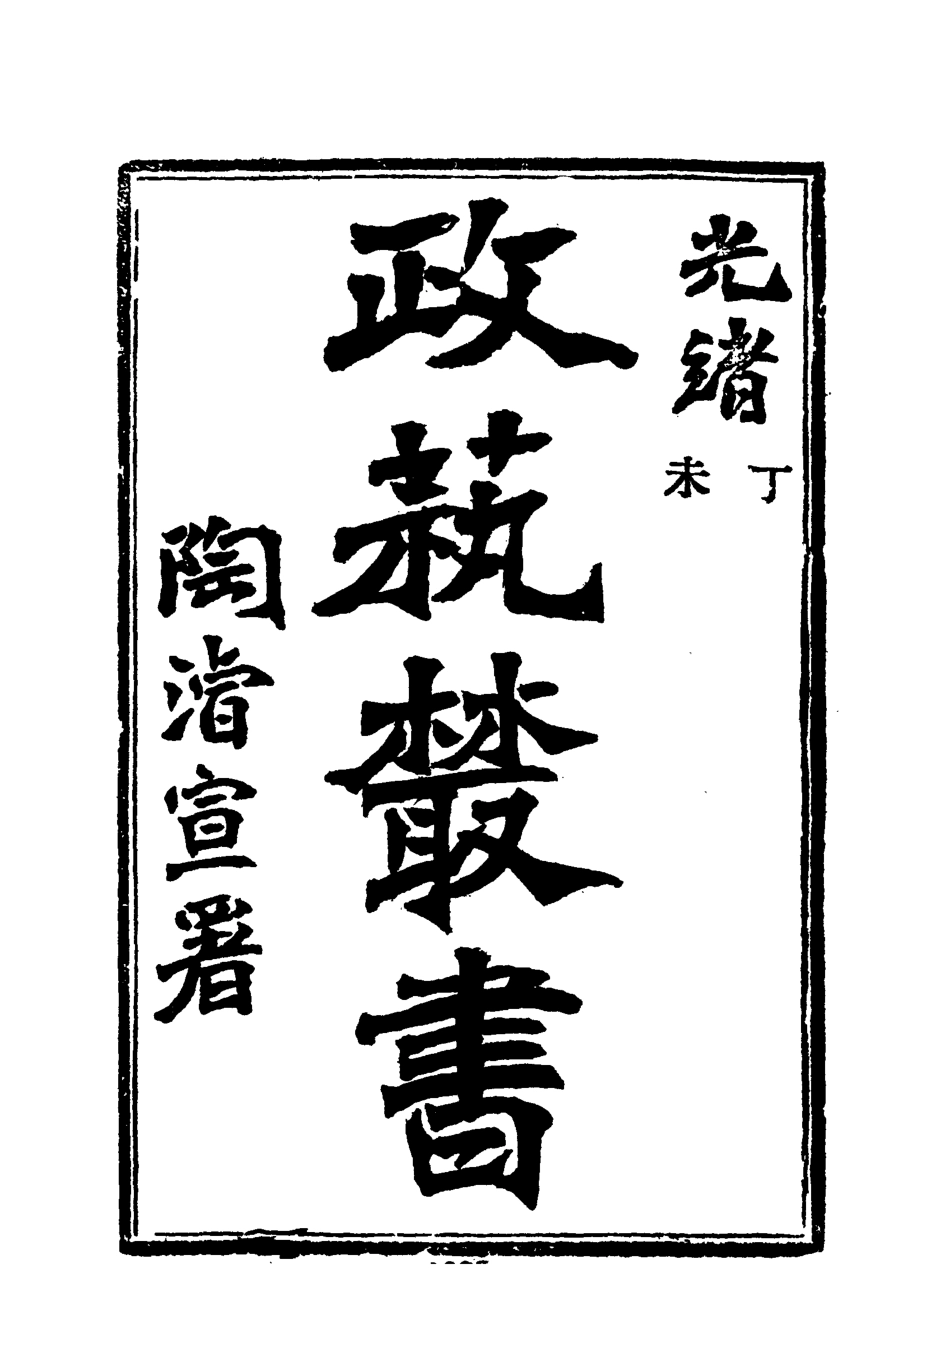 光緒丁未
政蓺叢書
陶濬宣署